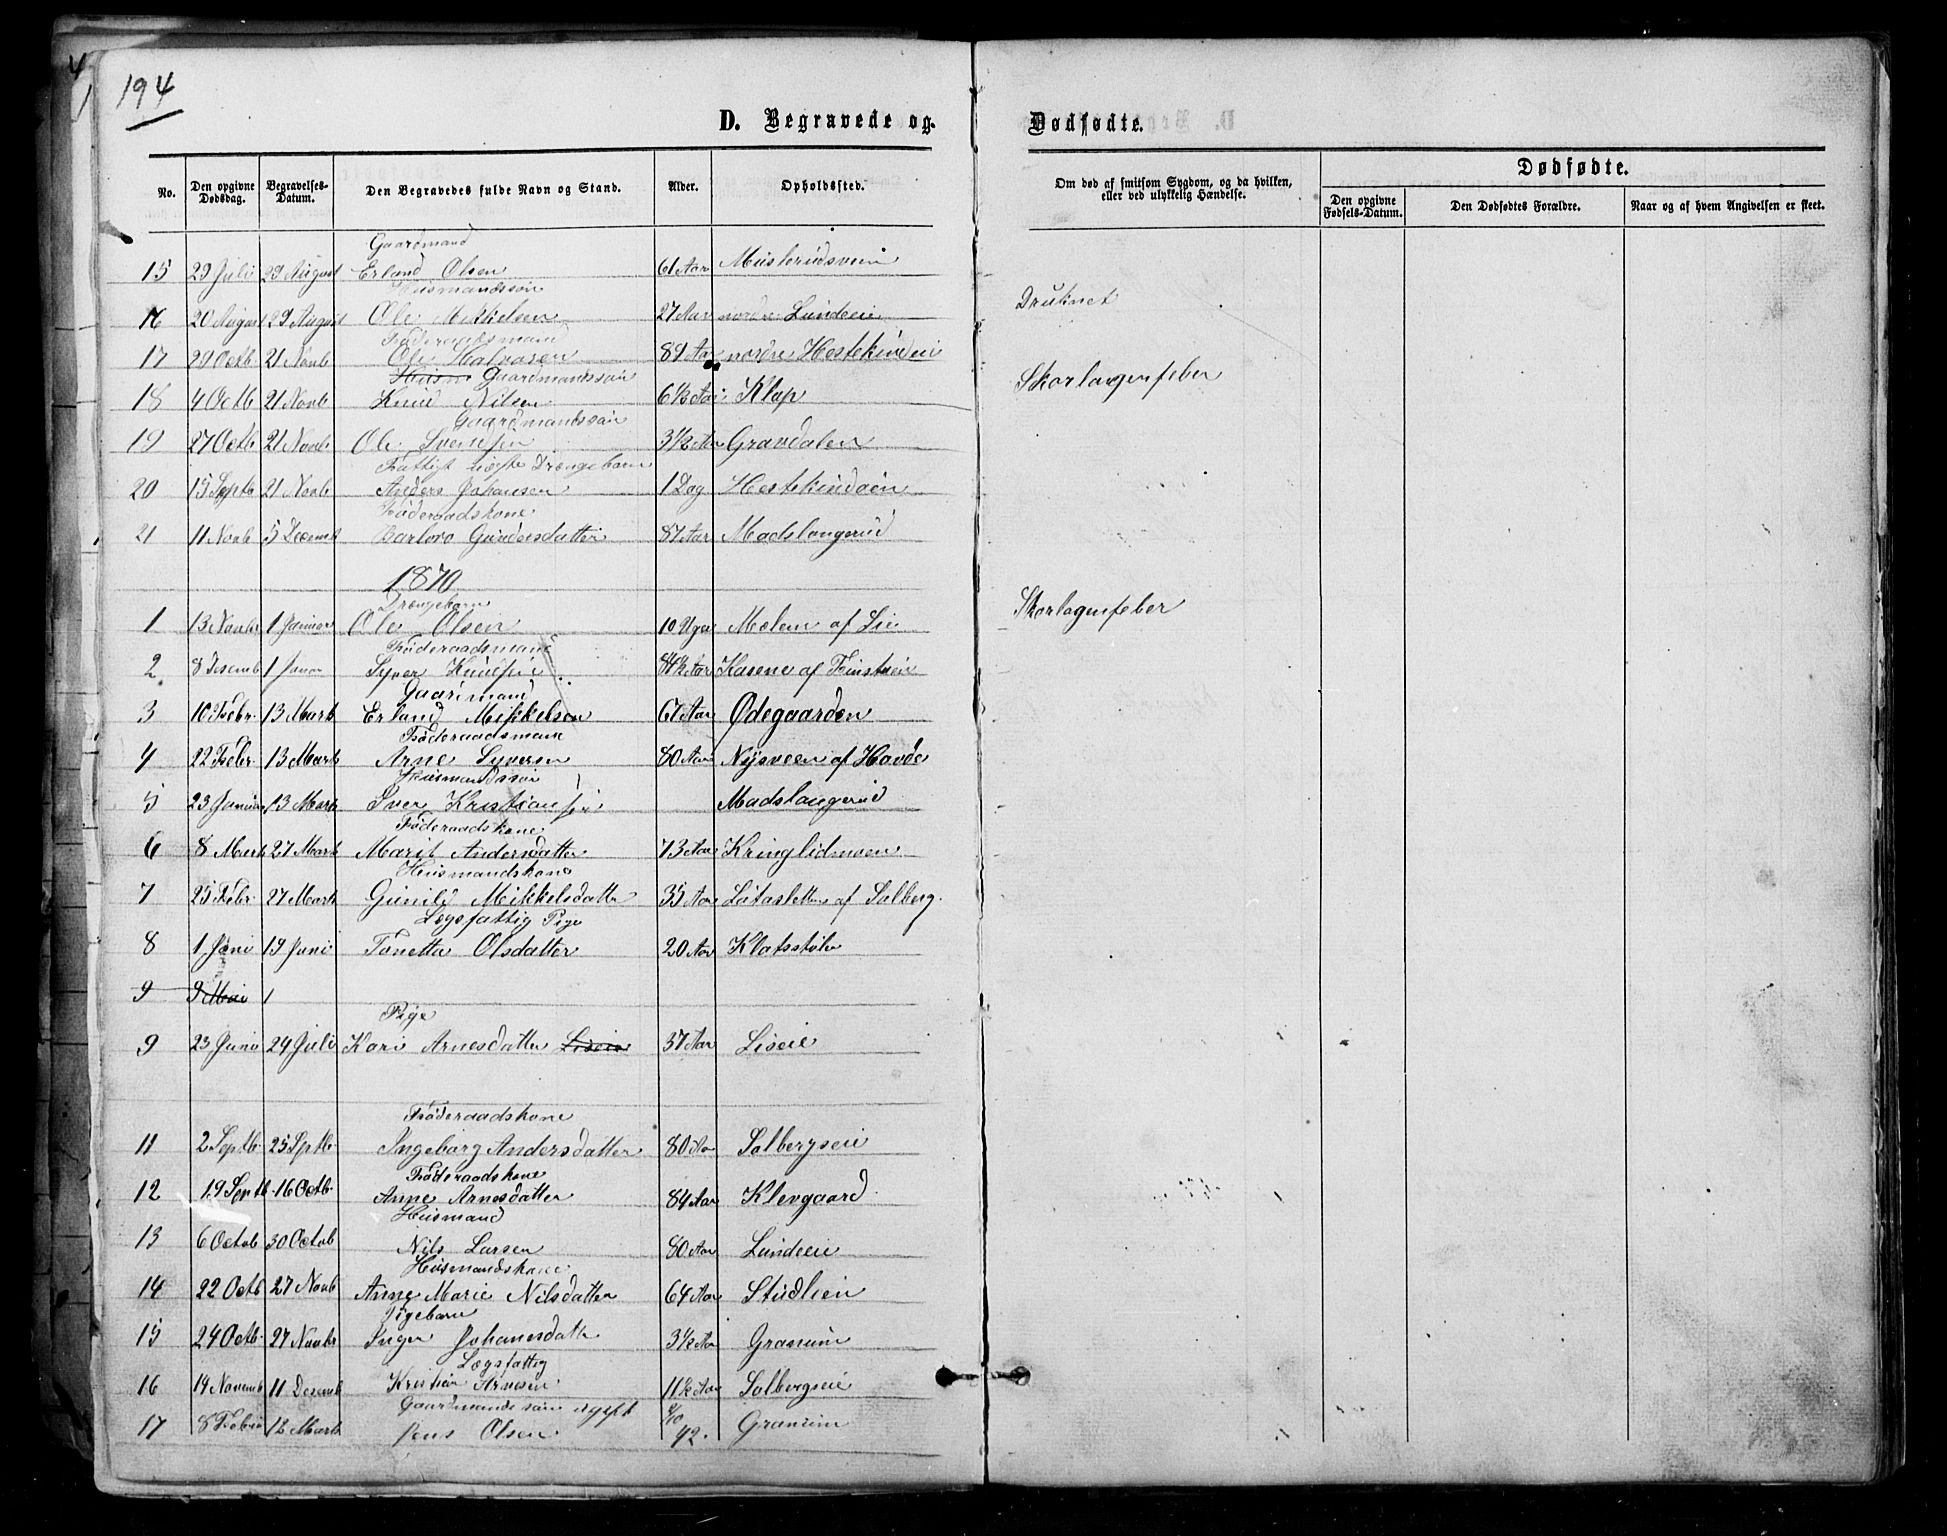 194
D. Begravede og Dødfødte.
No. Den opgivne Dødsdag. Begravelses-Datum. Den Begravedes fulde Navn og Stand. Alder. Opholdssted. Om død af smitsom Sygdom, og da hvilken, eller ved ulykkelig Hændelse. Dødfødte.
Den opgivne Fødsels-Datum. Den Dødfødtes Forældre. Naar og af hvem Angivelsen er skeet.
Gaardmand
15 29 Juli 29 August Erland Olsen 61 Aar
Husmandssøn
16 20 August 29 August Ole Mikkelsen 27 Aar nordre Lundeeie Druknet
Føderaadsmand
17 29 Octb 21 Novb Ole Halvorsen 89 Aar nordre
Husm Gaardmandssøn
18 4 Octb 21 Novb Knud Nilsen 6½ Aar Klap Skarlagensfeber
Gaardmandssøn
19 27 Octb 21 Novb Ole Svensen 3½ Aar Gravdalen
Fattigt Drengebarn
20 15 Septb 21 Novb Anders Johansen 1 Dag
Føderaadskone
21 11 Novb 5 Decemb Barbro Gundersdatter 87 Aar Madslangerud
1870
Drengebarn
1 13 Novbr 1 Januar Ole Olsen 10 Uger Molene af Lie Skarlagensfeber
Føderaadsmand
2 8 Desemb 1 Janar Syver Knudsen 84½ Aar Kasene af
Gaardmand
3 10 Febr. 13 Marts Erland Mikkelsen 67 Aar Ødegaarden
Føderaadsmand
4 22 Febr. 13 Marts Arne Syversen 80 Aar Nysveen af Havde
Husmandssøn
5 23 Januar 13 Marts Iver Kristiansen Madslangerud
Føderaadskone
6 8 Marts 27 Marts Marit Andersdatter 73 Aar Kringlidmoen
Husmandskone
7 25 Febr. 27 Marts Gunild Mikkelsdatter 35 Aar af Solberg.
Lægsfattig Pige
8 1 Juni 19 Juni Tonetta Olsdatter 20 Aar
9 9 Mai 1
Pige
9 23 Juni 24 Juli Kari Arnesdatter Liseie 37 Aar Liseie
Føderaadskone
11 2 Septb. 25 Septb. Ingeborg Andersdatter 80 Aar Solbergseie
Føderaadskone
12 19 Septb 16 Octb. Anne Arnesdatter 84 Aar Klevgaard
Husmand
13 6 Octob 30 Octob Nils Larsen 80 Aar Lundeeie
Husmandskone
14 22 Octb 27 Novb Anne Marie Nilsdatter 64 Aar Studlien
Pigebarn
15 24 Octb. 27 Novbr Inger Johanesdatt 3½ Aar Granum
Lægsfattig
16 14 Novemb 11 Desemb Kristian Arnesen 11½ Aar Solbergseie
Gaardmandssøn ugift
17 8 Febr 12 Marts Jens Olsen 42. Granum